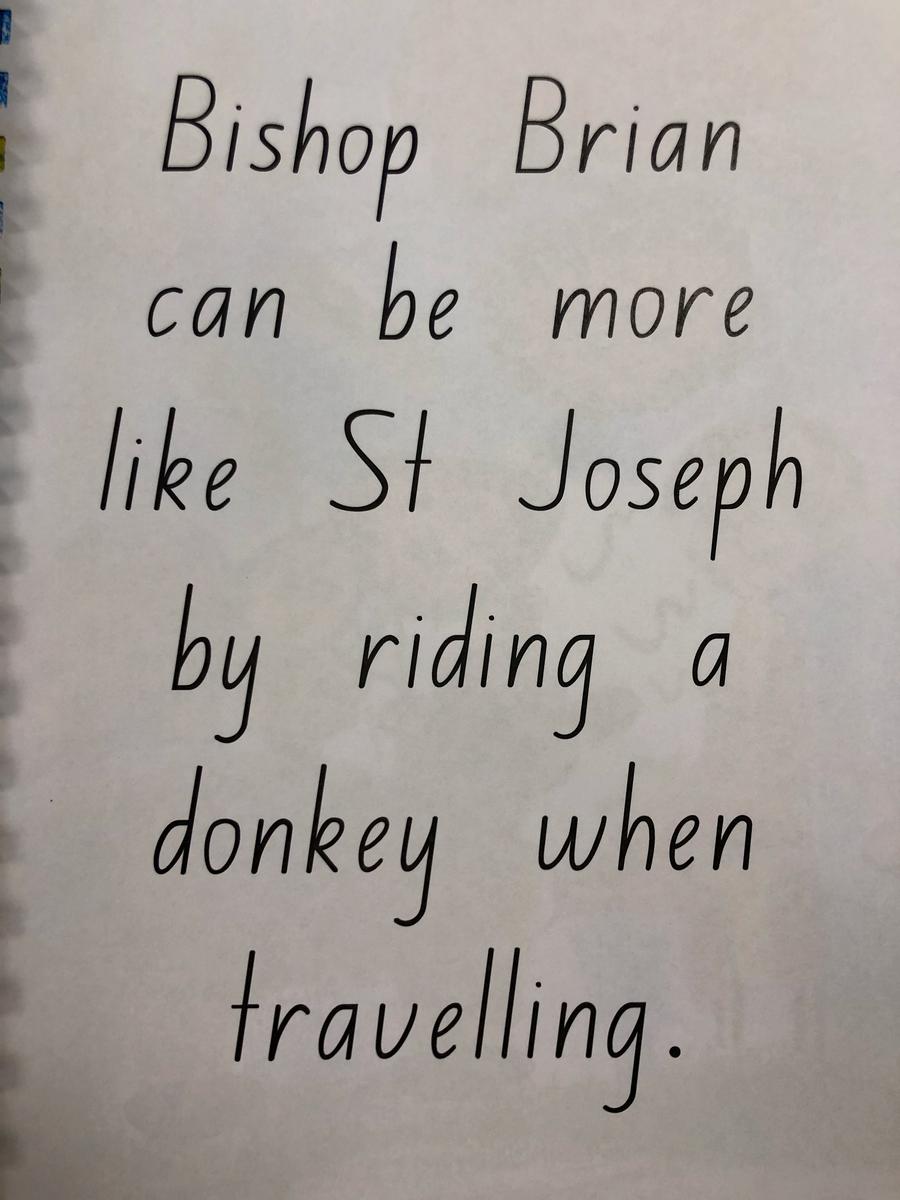 Bishop Brian
can be more
like St Joseph
by riding a
donkey when
travelling.